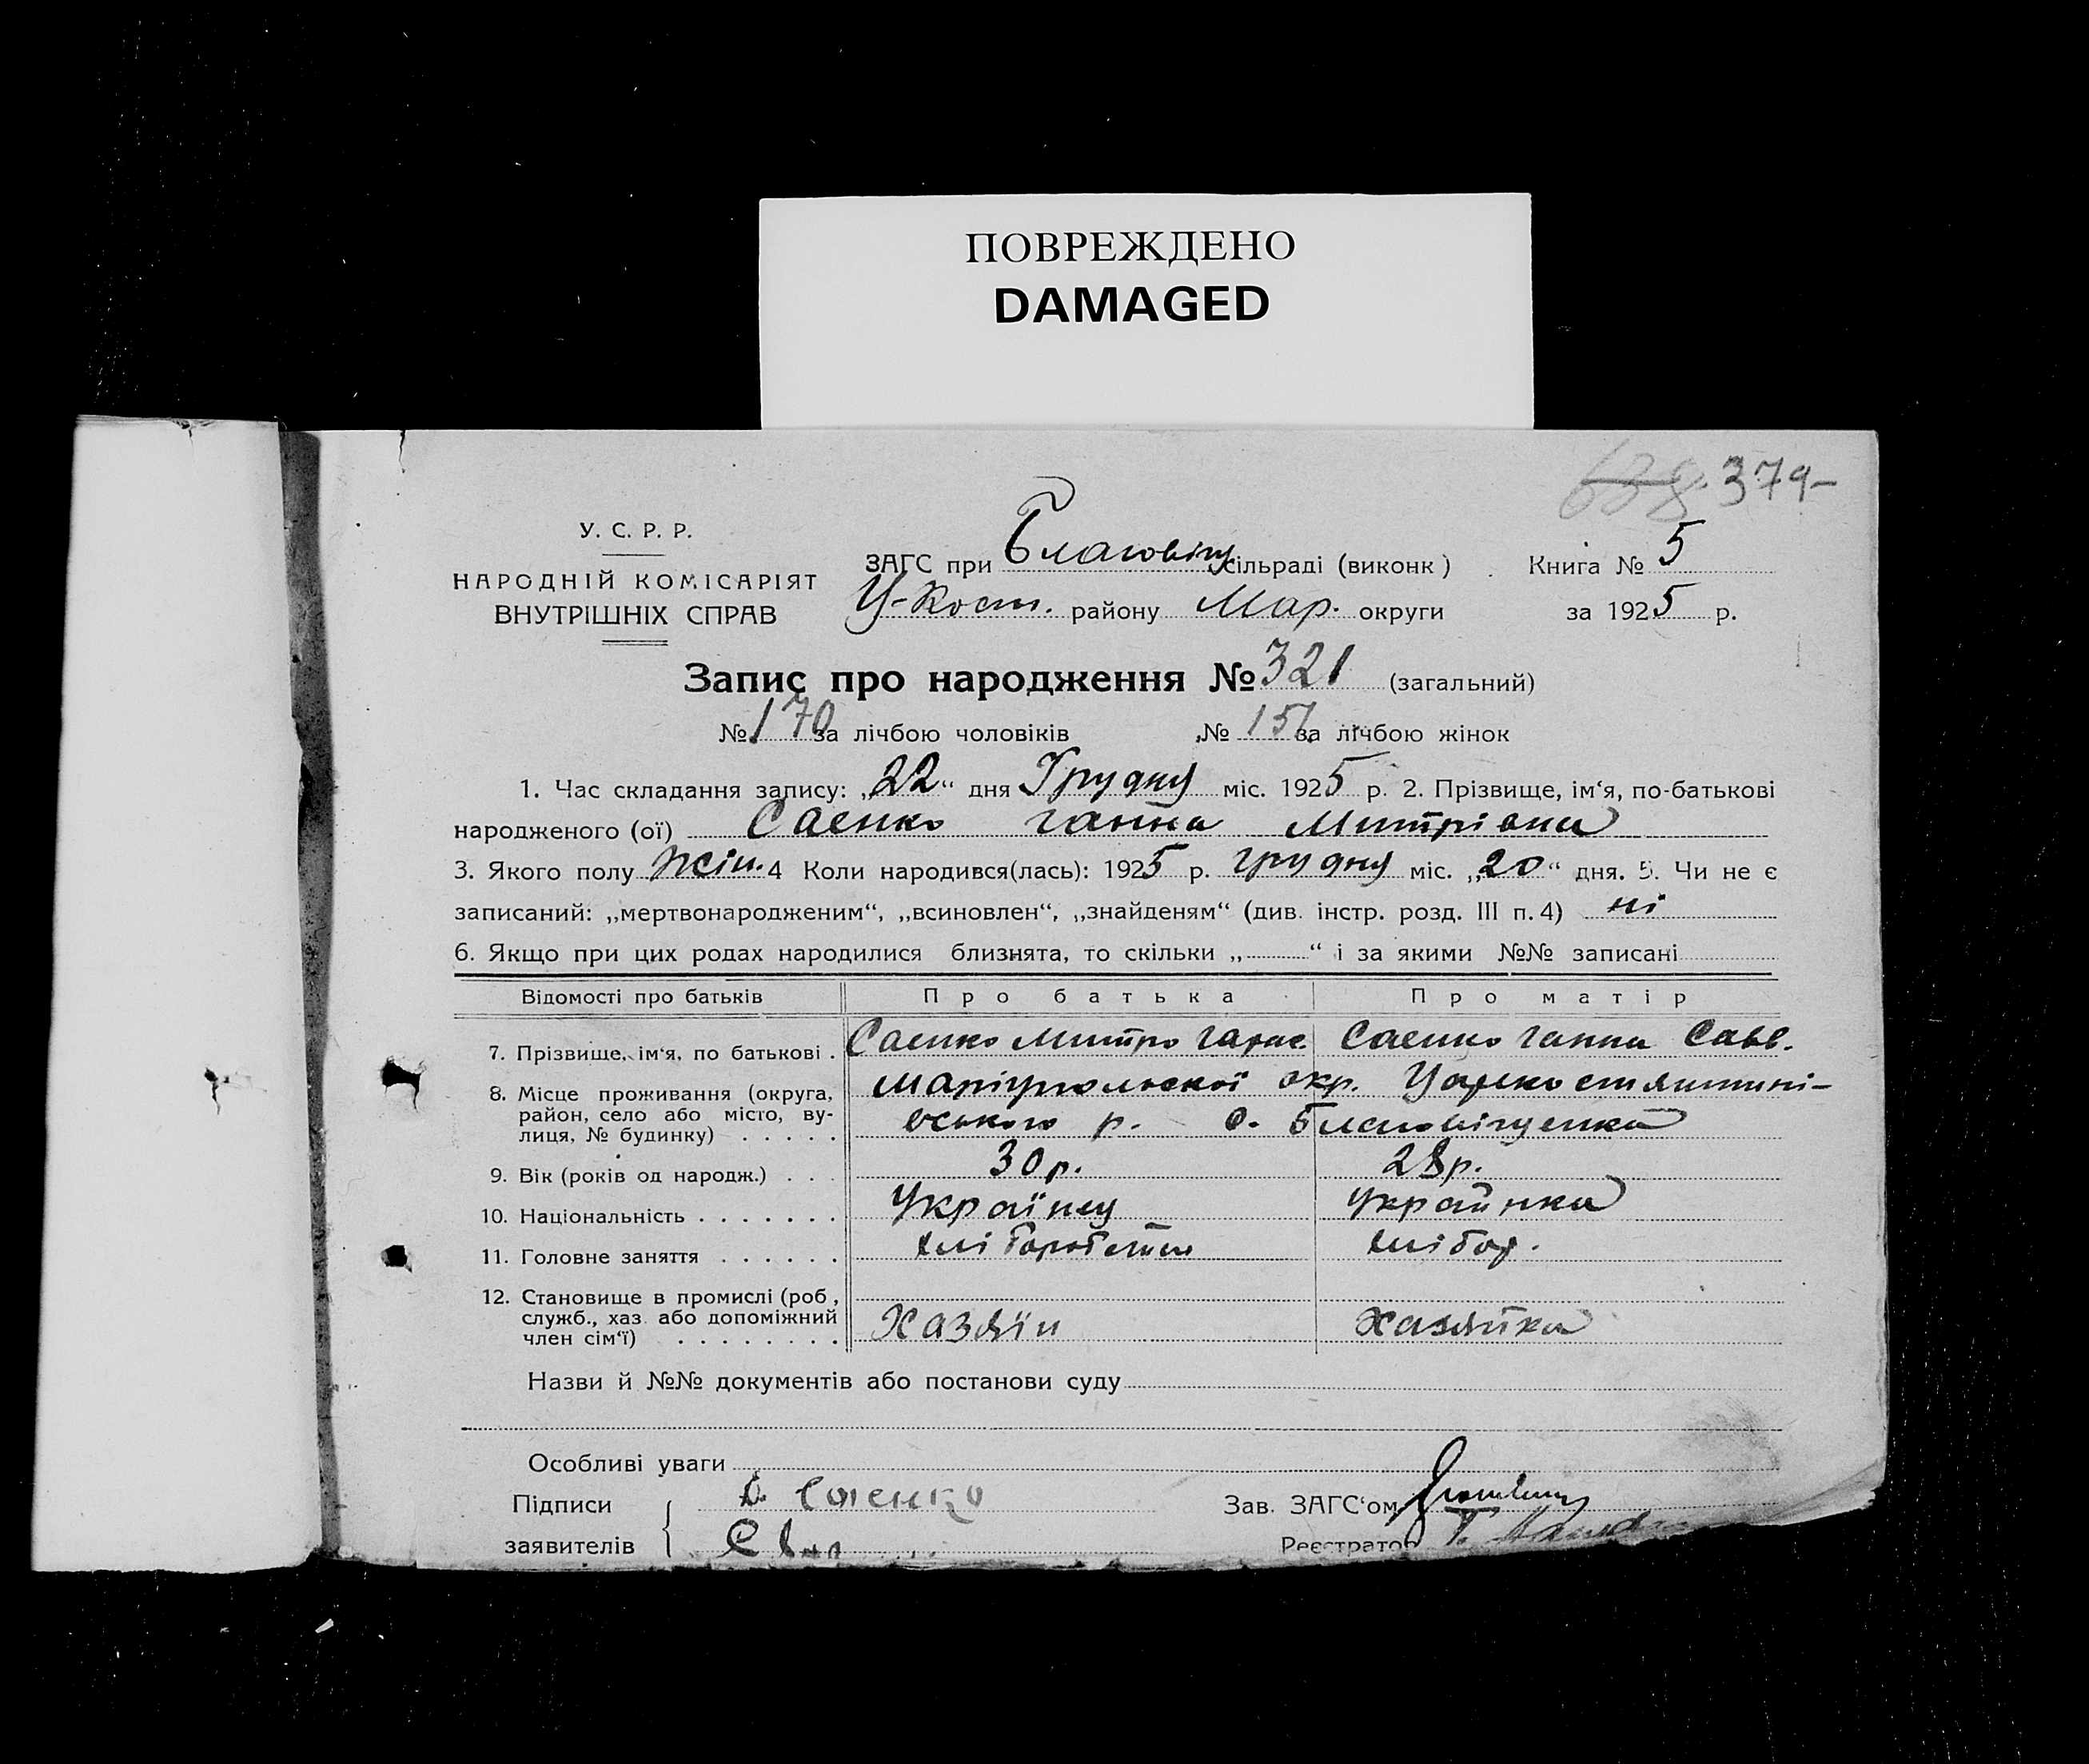 ПОВРЕЖДЕНО
DAMAGED
638 379-
У. С. Р. Р.
НАРОДНІЙ КОМІСАРІЯТ
ВНУТРІШНІХ СПРАВ
ЗАГС при Благовіщ сільраді (виконк) Книга № 5
Ц-Кост. району Мар. округи за 1925 р.
Запис про народження № 321 (загальний)
№ 170 за лічбою чоловіків № 151 за лічбою жінок
1. Час складання запису: „22“ дня Грудня міс. 1925 р. 2. Прізвище, ім‘я, по-батькові
народженого (ої) Саенко Ганна Митрівна
3. Якого полу жін. 4 Коли народився(лась): 1925 р. грудня міс. „20“ дня. 5. Чи не є
записаний: „мертвонародженим“, „всиновлен“, „знайденям“ (див. інстр. розд. III п. 4) ні
6. Якщо при цих родах народилися близнята, то скільки „ “ і за якими №№ записані
Відомості про батьків Про батька Про матір
7. Прізвище, ім‘я, по батькові . Саенко Митро Гарас. Саенко Ганна Савв.
8. Місце проживання (округа, район, село або місто, вулиця, № будинку) . . . . . Маріупольскої окр. Царекостянтині-
вського р. с. Благовіщенка
9. Вік (років од народж.) . . . 30 р. 28 р.
10. Національність . . . . . . . Українец Українка
11. Головне заняття . . . . . . хліборобство хлібор.
12. Становище в промислі (роб., служб., хаз. або допоміжний член сім‘ї) . . . . . . . . Хазяїн Хазяйка
Назви й №№ документів або постанови суду
Особливі уваги
Підписи Саенко Зав. ЗАГС‘ом
заявителів Реєстратор